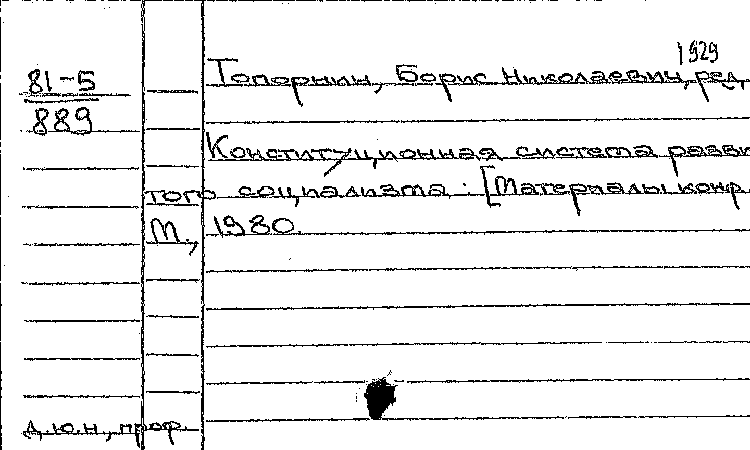 1929
81-5
Топорнин, Борис Николаевич, ред.
889
Конституционная система разви
того социализма : [Материалы конф
М., 1980.
д.ю.н., проф.